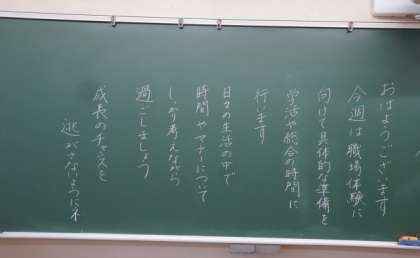 おはようございます
今週は職場体験に
向けて具体的な準備を
学活や総合の時間に
行います
日々の生活の中で
時間やマナーについて
しっかり考えながら
過ごしましょう
成長のチャンスを
逃がさなようにネ